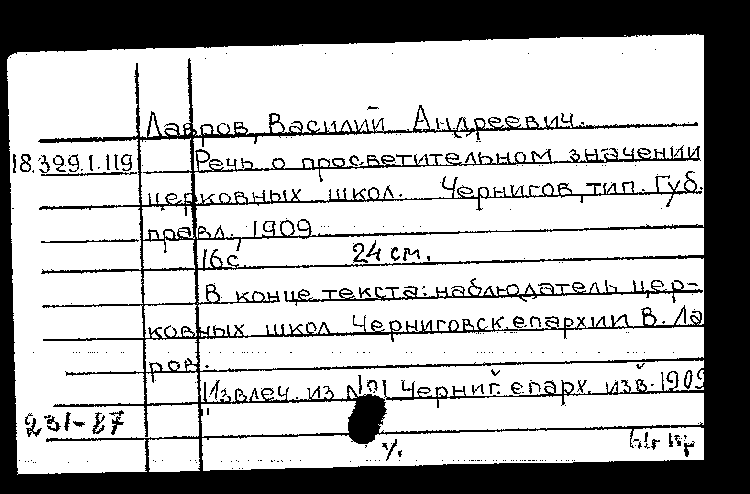 Лавров, Василий Андреевич.
18.329.1.119 Речь о просветительном значении
церковных школ. Чернигов, тип. Губ.
правл., 1909
16с 24 см.
В конце текста: наблюдатель цер-
ковных школ Черниговск. епархии В. Ла
ров.
Извлеч. из №21 Черниг. епарх. изв. 1909
231-87